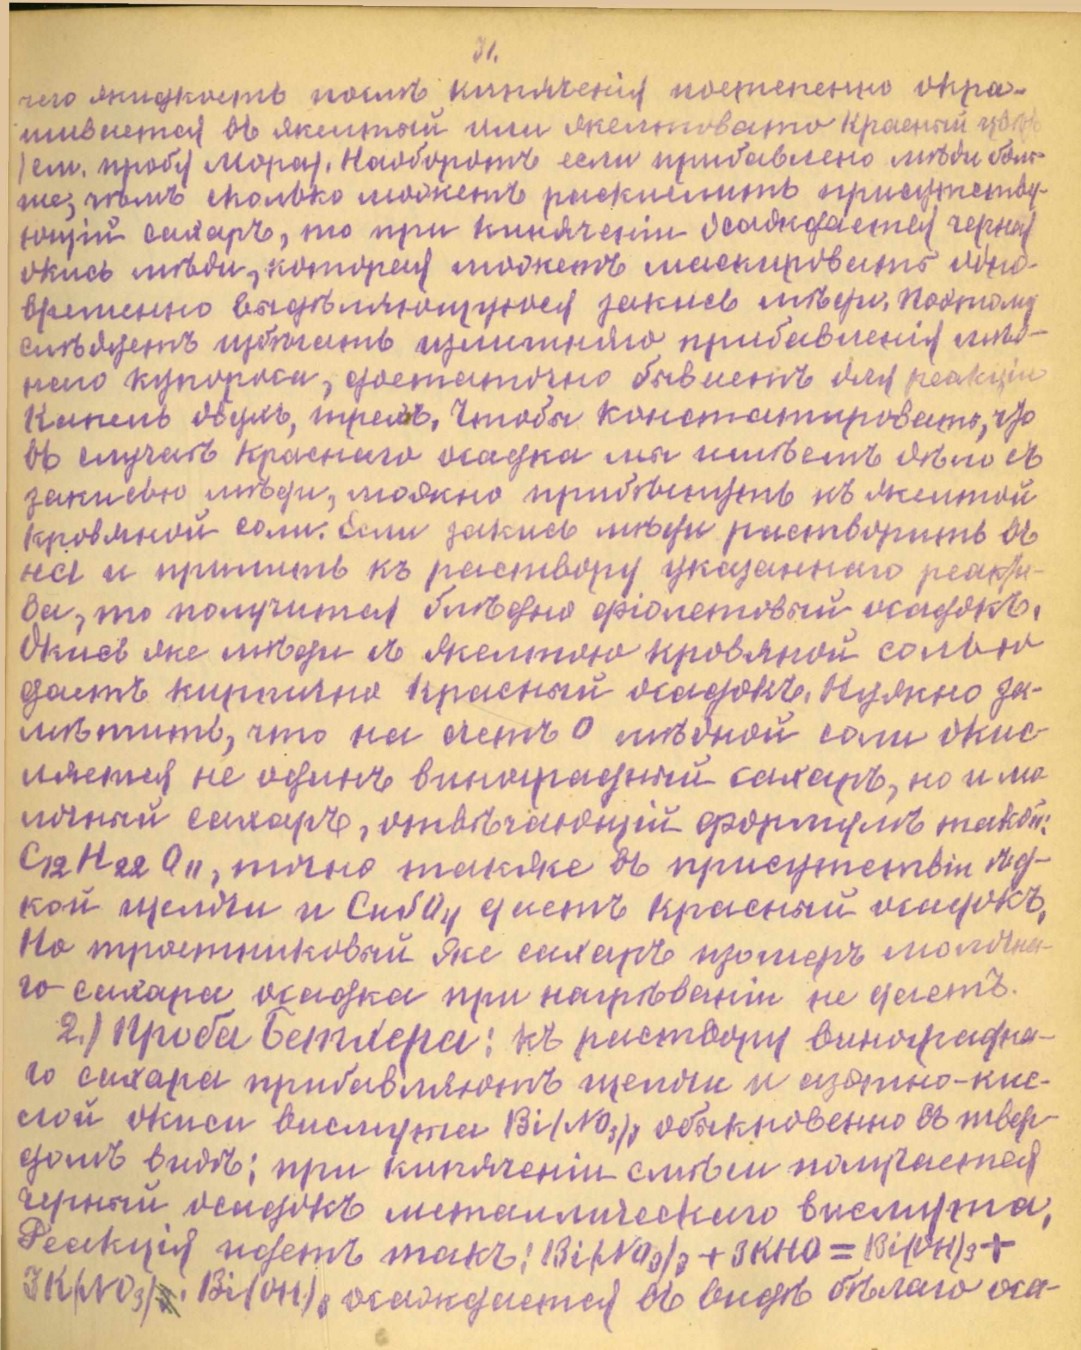 31.
чего жидкость послѣ кипяченія постепенно окра-
шивается въ желтый или желтовато красный цвѣтъ
/см. пробу Мора/. Наоборотъ если прибавлено мѣди боль-
ше, чѣмъ сколько можетъ раскислить присутству-
ющій сахаръ, то при кипяченіи осаждается черная
окись мѣди, которая можетъ маскировать одно-
временно выдѣляющуюся закись мѣди. Поэтому
слѣдуетъ избѣгать излишняго прибавленія мѣд-
наго купороса, достаточно бываетъ для реакціи
капель двухъ, трехъ. Чтобы констатировать, что
въ случаѣ краснаго осадка мы имѣемъ дѣло съ
закисью мѣди, можно прибѣгнуть къ желтой
кровяной соли. Если закись мѣди растворить въ
HCl и прилить къ раствору указаннаго реакти-
ва, то получится блѣдно фіолетовый осадокъ.
Окись же мѣди съ желтою кровяной солью
даетъ кирпично красный осадокъ. Нужно за-
мѣтить, что на счетъ O мѣдной соли окис-
ляется не одинъ виноградный сахаръ, но и мо
лочный сахаръ, отвѣчающій формулѣ такой:
C12H22O11, точно также въ присутствіи ѣд-
кой щелочи и CuSO4 даетъ красный осадокъ.
Но тростниковый же сахаръ изомеръ молочна-
го сахара осадка при нагрѣваніи не даетъ.
2.) Проба Бетхера: къ раствору виноградна-
го сахара прибавляютъ щелочи и азотно-кис-
лой окиси висмута Bi(NO3)3 обыкновенно въ твер-
домъ видѣ; при кипяченіи смѣси получается
черный осадокъ металлическаго висмута.
Реакція идетъ такъ: Bi(NO3)3 + 3KHO = Bi(OH)3 +
3K(NO3). Bi(OH)3 осаждается въ видѣ бѣлаго оса-